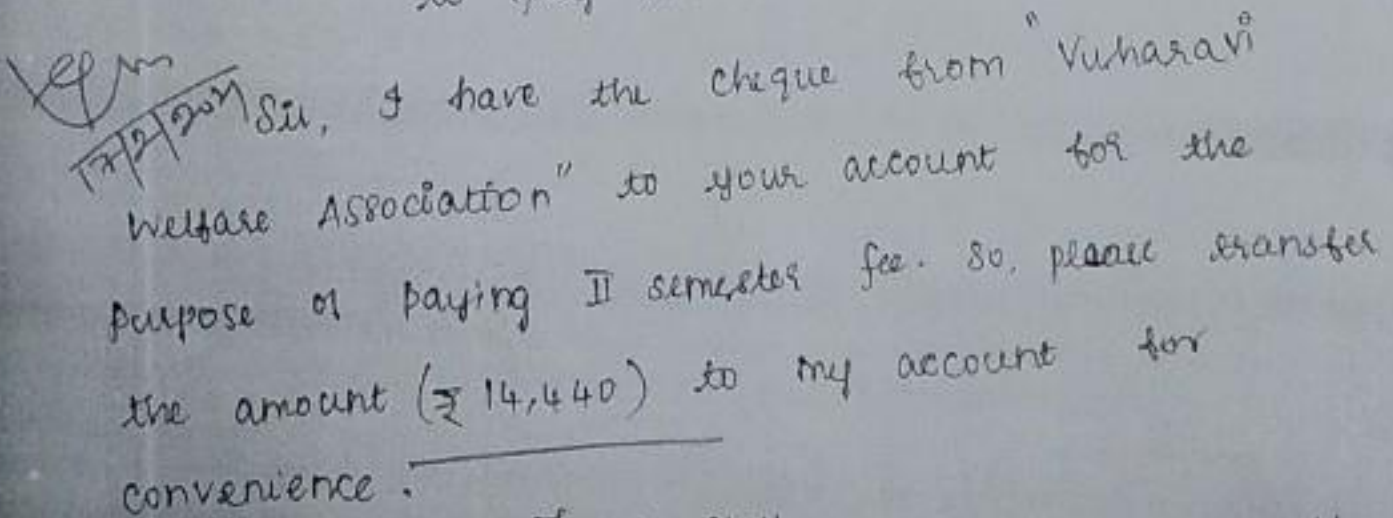 Sir, I have the cheque from "Vuharavi
Welfare Association" to your account for the
purpose of paying II semester fee. So, please transfer
the amount (₹ 14,440) to my account for
convenience.